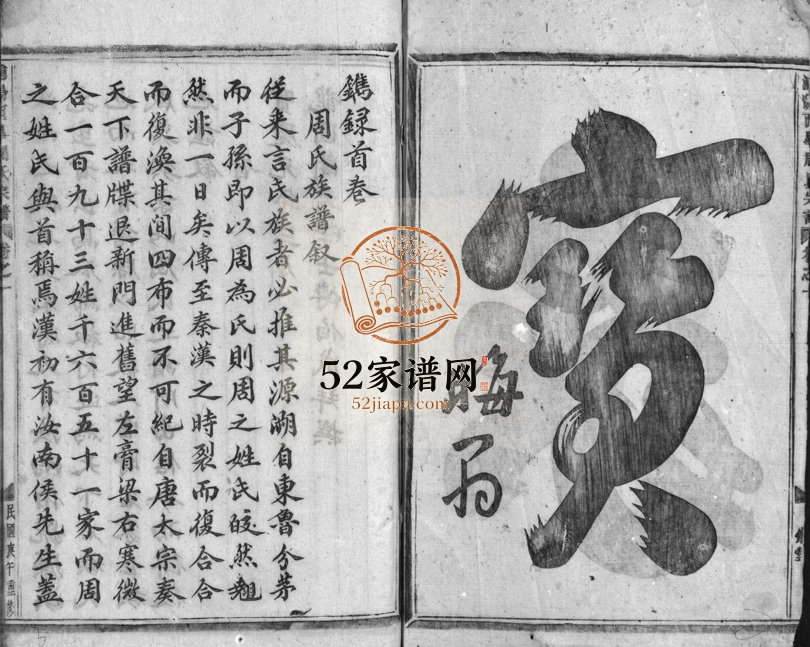 寶
晦翁
鐫録首卷
周氏族譜叙
從来言氏族者必推其源溯自東魯分茅
而子孫即以周為氏則周之姓氏皎然翹
然非一日矣傳至秦漢之時裂而復合合
而復渙其間四布而不可紀自唐太宗奏
天下譜牒退新門進舊望左膏梁右寒微
合一百九十三姓千六百五十一家而周
之姓氏與首稱焉漢初有汝南侯先生蓋
民國庚午重修
52家谱网
52jiapu.com